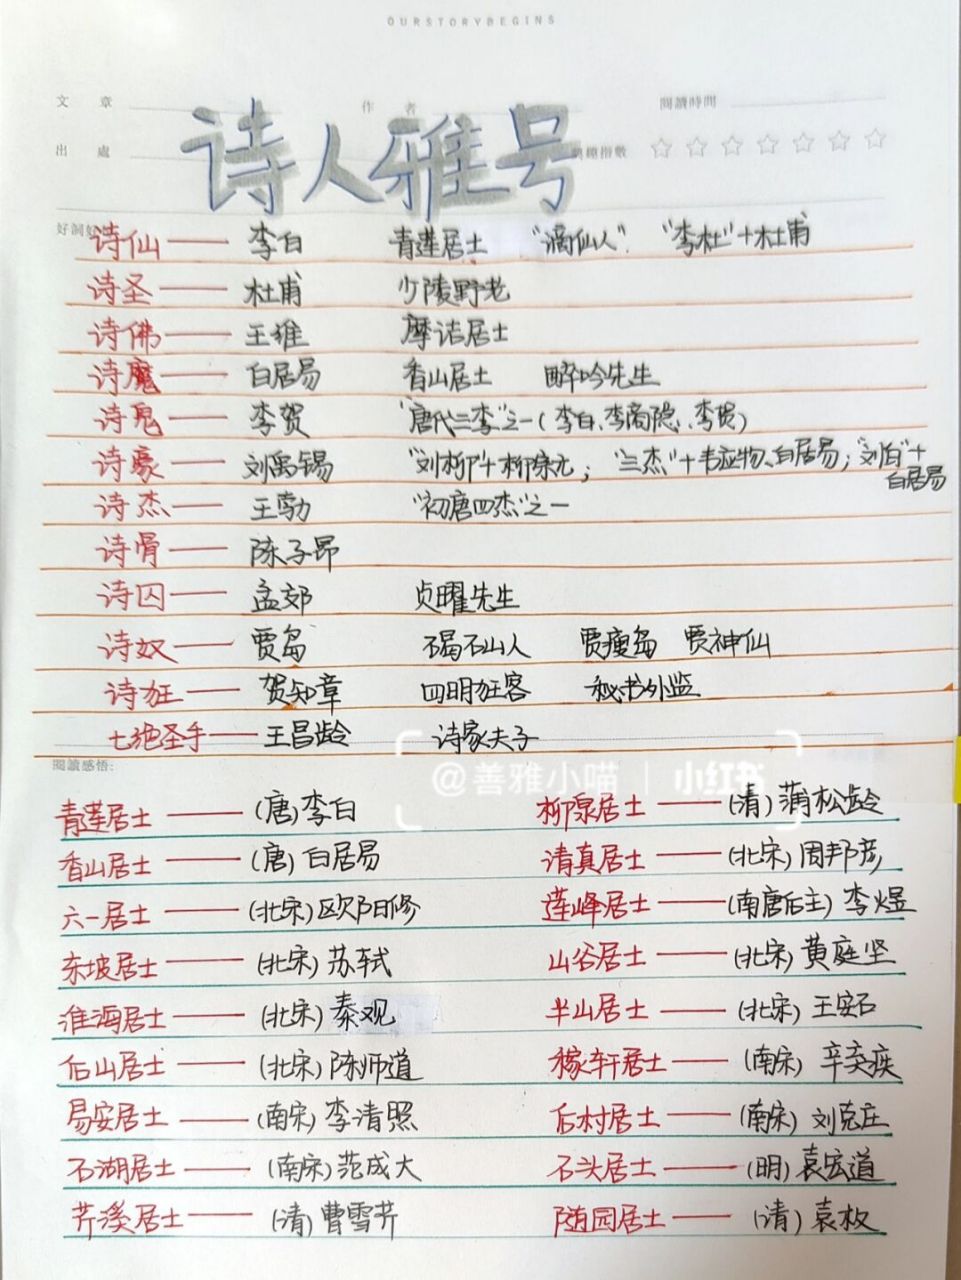 OURSTORYBEGINS
文 章 作 者 閱讀時間
出 處 指數
诗人雅号
好詞好
诗仙 —— 李白 青莲居士 “谪仙人” “李杜”+杜甫
诗圣 —— 杜甫 少陵野老
诗佛 —— 王维 摩诘居士
诗魔 —— 白居易 香山居士 醉吟先生
诗鬼 —— 李贺 “唐代三李”之一(李白、李商隐、李贺)
诗豪 —— 刘禹锡 “刘柳”+柳宗元； “三杰”+韦应物、白居易；“刘白”+
白居易
诗杰 —— 王勃 “初唐四杰”之一
诗骨 —— 陈子昂
诗囚 —— 孟郊 贞曜先生
诗奴 —— 贾岛 碣石山人 贾瘦岛 贾神仙
诗狂 —— 贺知章 四明狂客 秘书外监
七绝圣手 —— 王昌龄 诗家夫子
閱讀感悟:
@善雅小喵 | 小红书
青莲居士 —— (唐) 李白 柳泉居士 —— (清) 蒲松龄
香山居士 —— (唐) 白居易 清真居士 —— (北宋) 周邦彦
六一居士 —— (北宋) 欧阳修 莲峰居士 —— (南唐后主) 李煜
东坡居士 —— (北宋) 苏轼 山谷居士 —— (北宋) 黄庭坚
淮海居士 —— (北宋) 秦观 半山居士 —— (北宋) 王安石
后山居士 —— (北宋) 陈师道 稼轩居士 —— (南宋) 辛弃疾
易安居士 —— (南宋) 李清照 后村居士 —— (南宋) 刘克庄
石湖居士 —— (南宋) 范成大 石头居士 —— (明) 袁宏道
芹溪居士 —— (清) 曹雪芹 随园居士 —— (清) 袁枚